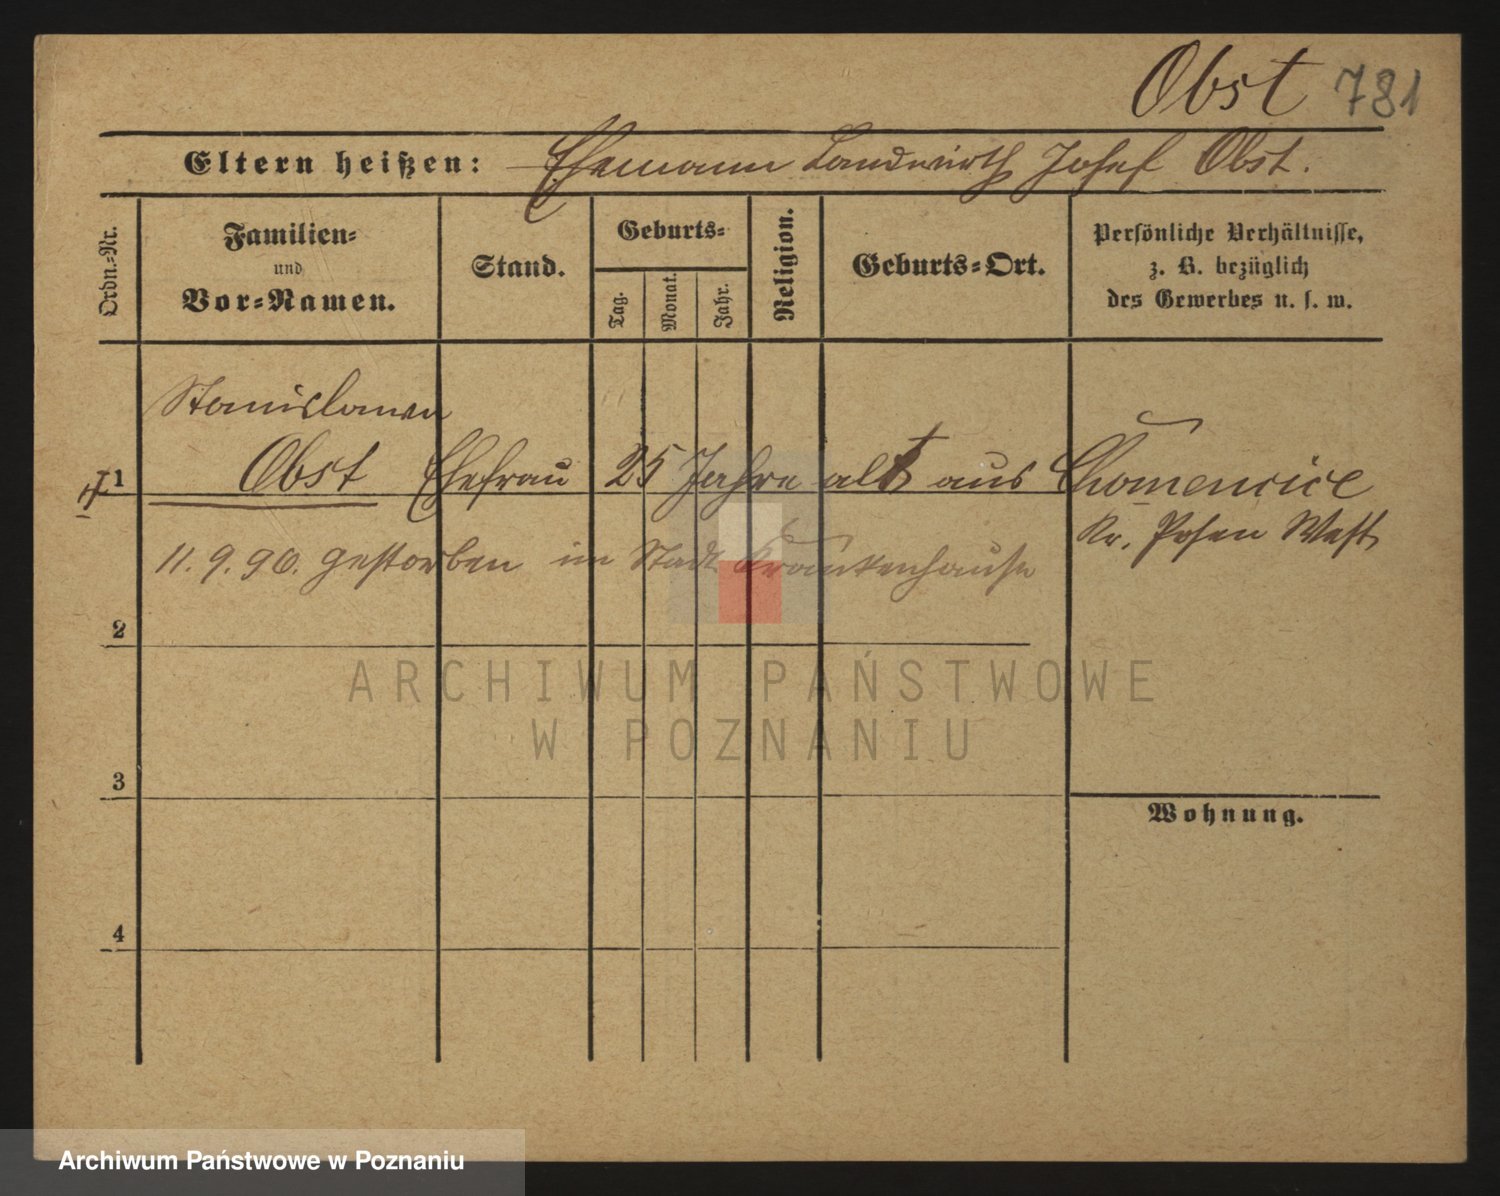 Obst 781
Eltern heißen: Ehemann Landwirth Josef Obst.
Ordn.=Nr.
Familien=
und
Vor=Namen.
Stand.
Geburts=
Tag.
Monat.
Jahr.
Religion.
Geburts=Ort.
Persönliche Verhältnisse,
z. B. bezüglich
des Gewerbes u. s. w.
Stanislawa
1 Obst Ehefrau 25 Jahre alt aus Chomencice
Kr. Posen West
11. 9. 90. gestorben im Stadt Krankenhause
2
ARCHIWUM PAŃSTWOWE
W POZNANIU
3
Wohnung.
4
Archiwum Państwowe w Poznaniu